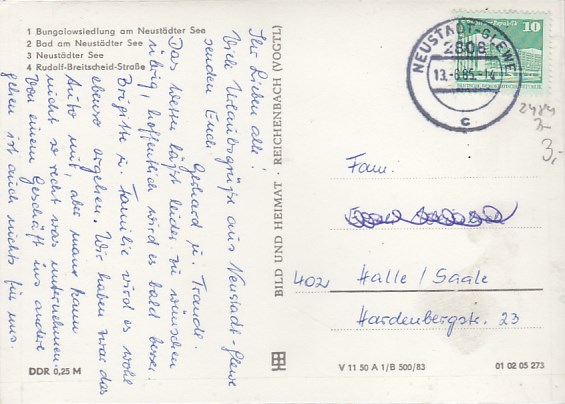 1 Bungalowsiedlung am Neustädter See
2 Bad am Neustädter See
3 Neustädter See
4 Rudolf-Breitscheid-Straße
Ihr Lieben alle!
Viele Urlaubsgrüße aus Neustadt-Glewe
senden Euch Gerhard u. Traudl.
Das Wetter läßt leider zu wünschen
übrig, hoffentlich wird es bald besser.
Brigitte u. Familie wird es wohl
ebenso ergehen. Wir haben zwar das
Auto mit, aber man kann
nicht so recht was unternehmen.
Von einem Geschäft ins andere
gehen ist auch nichts für uns.
DDR 0,25 M
BILD UND HEIMAT · REICHENBACH (VOGTL)
NEUSTADT-GLEWE
2808
13.-6.85.-14
c
10
2484
3,-
3,-
Fam.
402 Halle/Saale
Hardenbergstr. 23
V 11 50 A 1/B 500/83
01 02 05 273